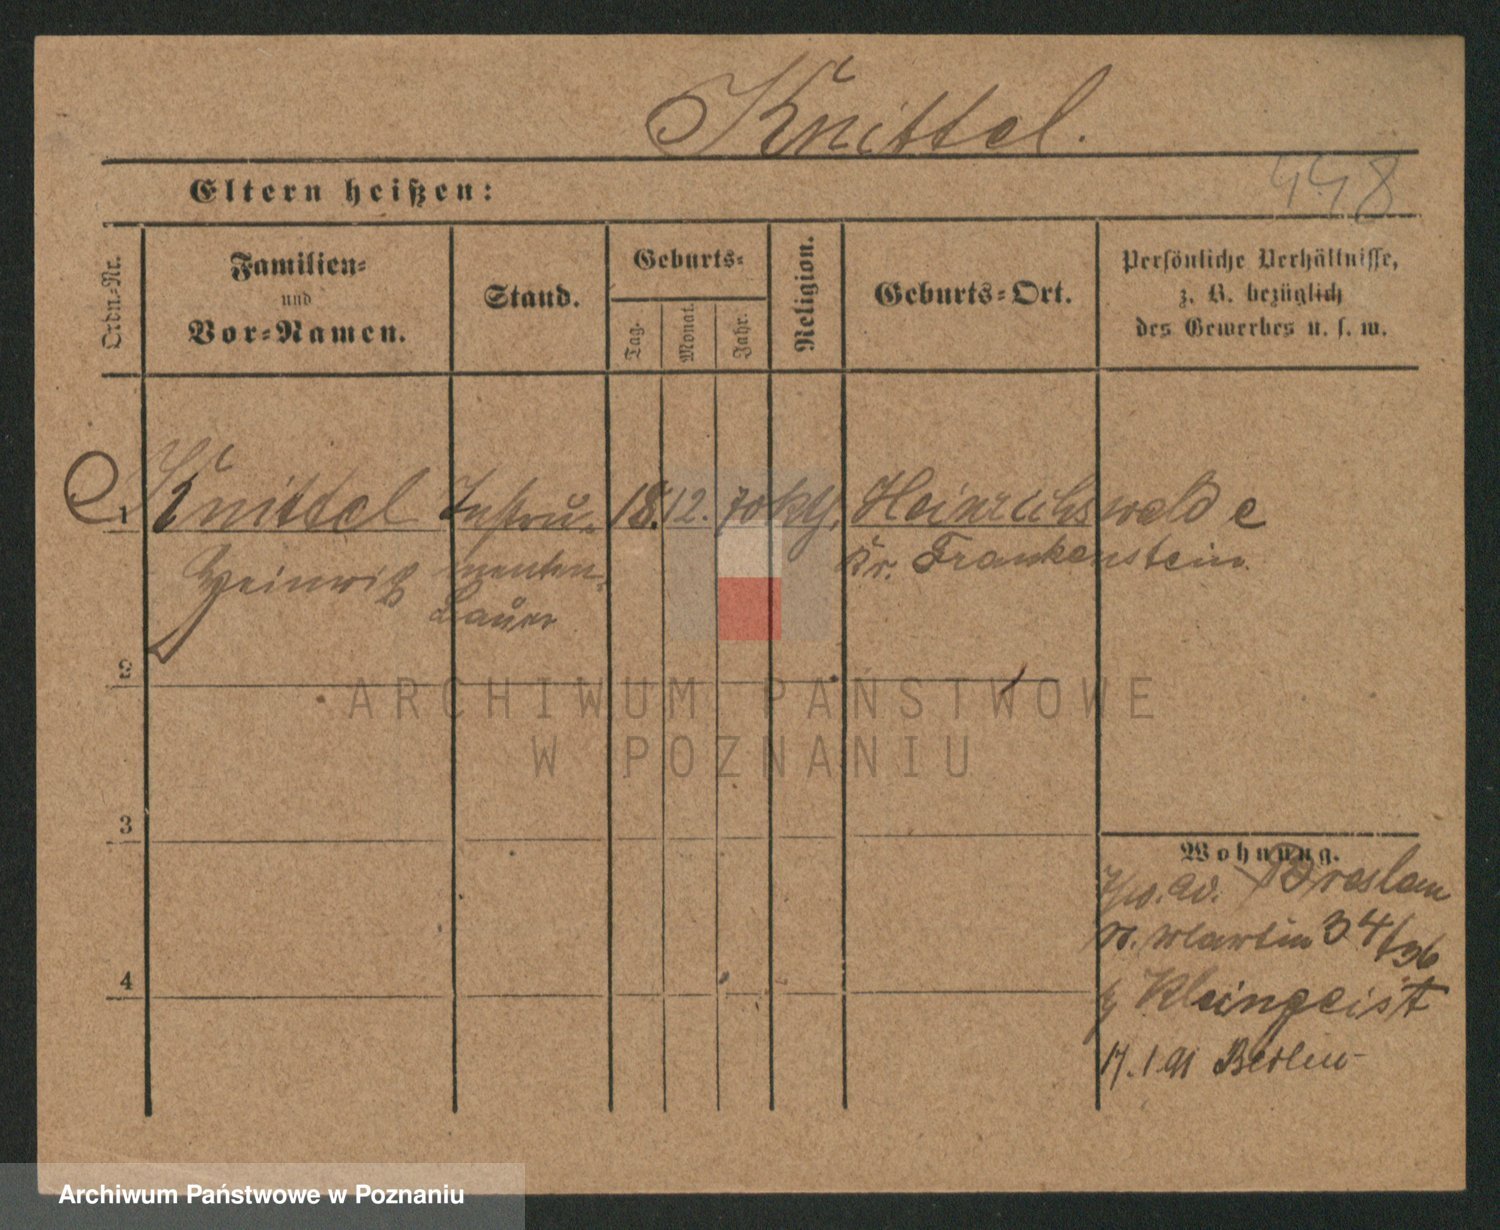 Knittel.
448
Eltern heißen:
Ordn.-Nr.
Familien-
und
Vor-Namen.
Stand.
Geburts-
Tag.
Monat.
Jahr.
Religion.
Geburts-Ort.
Persönliche Verhältnisse,
z. B. bezüglich
des Gewerbes u. s. w.
1 Knittel Instru- 18. 12. 70 kth. Heinrichswalde
Heinrich menten- Kr. Frankenstein
Bauer
2
ARCHIWUM PAŃSTWOWE
W POZNANIU
3
Wohnung.
Breslau
Martin 34/36
Kleingeist
4
17.1.91 Berlin
Archiwum Państwowe w Poznaniu